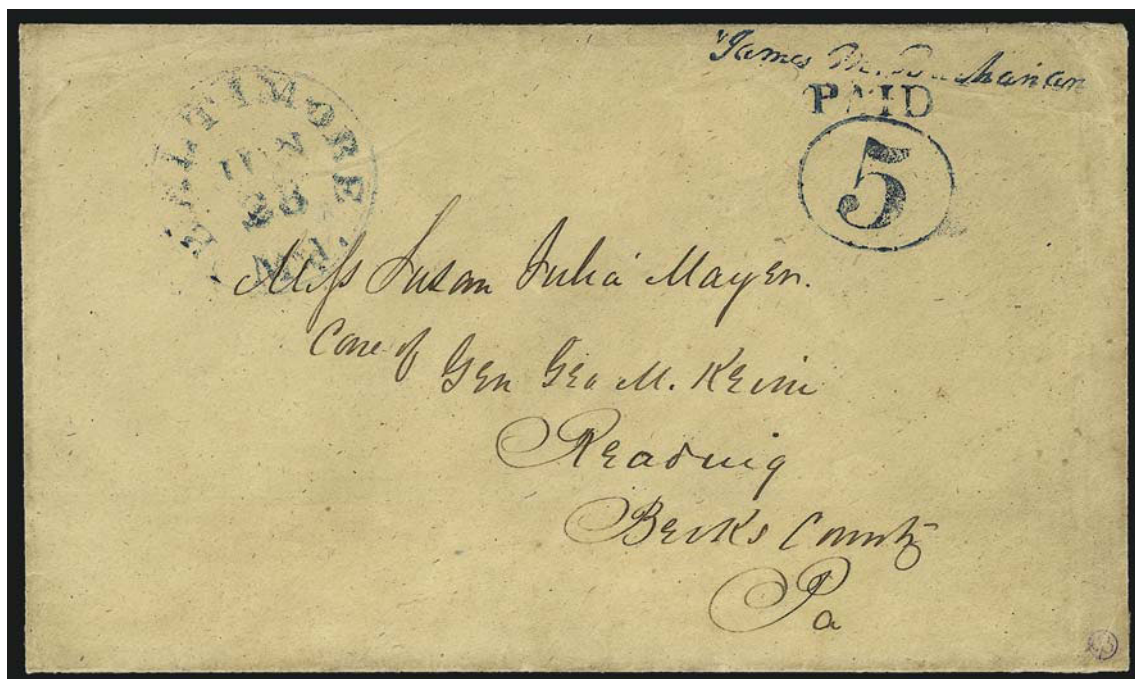 James M. Buchanan
PAID
5
BALTIMORE
JUN
Md.
Miss Susan Julia Mayer.
Care of Gen Geo M. Keim
Reading
Berks County
Pa